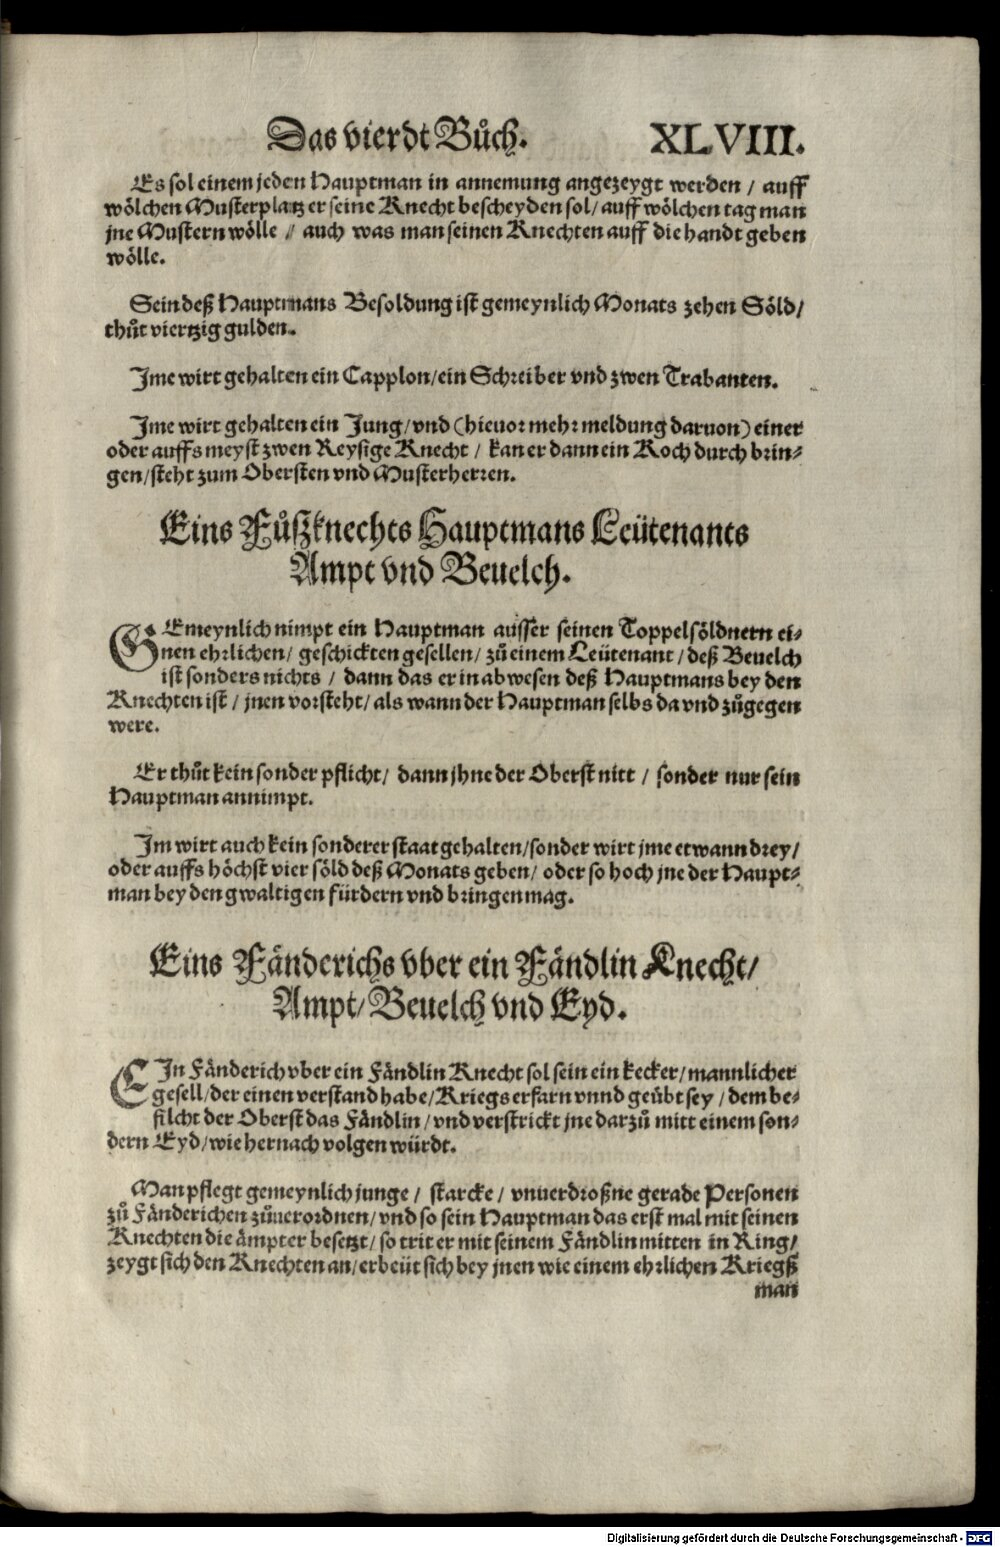 Das vierdt Bůch. XLVIII.
Es sol einem jeden Hauptman in annemung angezeygt werden / auff
wölchen Musterplatz er seine Knecht bescheyden sol / auff wölchen tag man
jne Mustern wölle / auch was man seinen Knechten auff die handt geben
wölle.
Sein deß Hauptmans Besoldung ist gemeynlich Monats zehen Söld /
thůt viertzig gulden.
Jme wirt gehalten ein Capplon / ein Schreiber vnd zwen Trabanten.
Jme wirt gehalten ein Jung / vnd (hieuor mehr meldung daruon) einer
oder auffs meyst zwen Reysige Knecht / kan er dann ein Koch durch brin-
gen / steht zum Obersten vnd Musterherren.
Eins Fůßknechts Hauptmans Leütenants
Ampt vnd Beuelch.
GEmeynlich nimpt ein Hauptman ausser seinen Toppelsöldnern ei-
nen ehrlichen / geschickten gesellen / zů einem Leütenant / deß Beuelch
ist sonders nichts / dann das er in abwesen deß Hauptmans bey den
Knechten ist / jnen vorsteht / als wann der Hauptman selbs da vnd zůgegen
were.
Er thůt kein sonder pflicht / dann jhne der Oberst nitt / sonder nur sein
Hauptman annimpt.
Jm wirt auch kein sonderer staat gehalten / sonder wirt jme etwann drey /
oder auffs höchst vier söld deß Monats geben / oder so hoch jne der Haupt-
man bey den gwaltigen fürdern vnd bringen mag.
Eins Fänderichs vber ein Fändlin Knecht /
Ampt / Beuelch vnd Eyd.
EJn Fänderich vber ein Fändlin Knecht sol sein ein kecker / mannlicher
gesell / der einen verstand habe / Kriegs erfarn vnnd geübt sey / dem be-
filcht der Oberst das Fändlin / vnd verstrickt jne darzů mitt einem son-
dern Eyd / wie hernach volgen würdt.
Man pflegt gemeynlich junge / starcke / vnuerdroßne gerade Personen
zů Fänderichen zůuerordnen / vnd so sein Hauptman das erst mal mit seinen
Knechten die ämpter besetzt / so trit er mit seinem Fändlin mitten in Ring /
zeygt sich den Knechten an / erbeüt sich bey jnen wie einem ehrlichen Kriegß
man
Digitalisierung gefördert durch die Deutsche Forschungsgemeinschaft - DFG